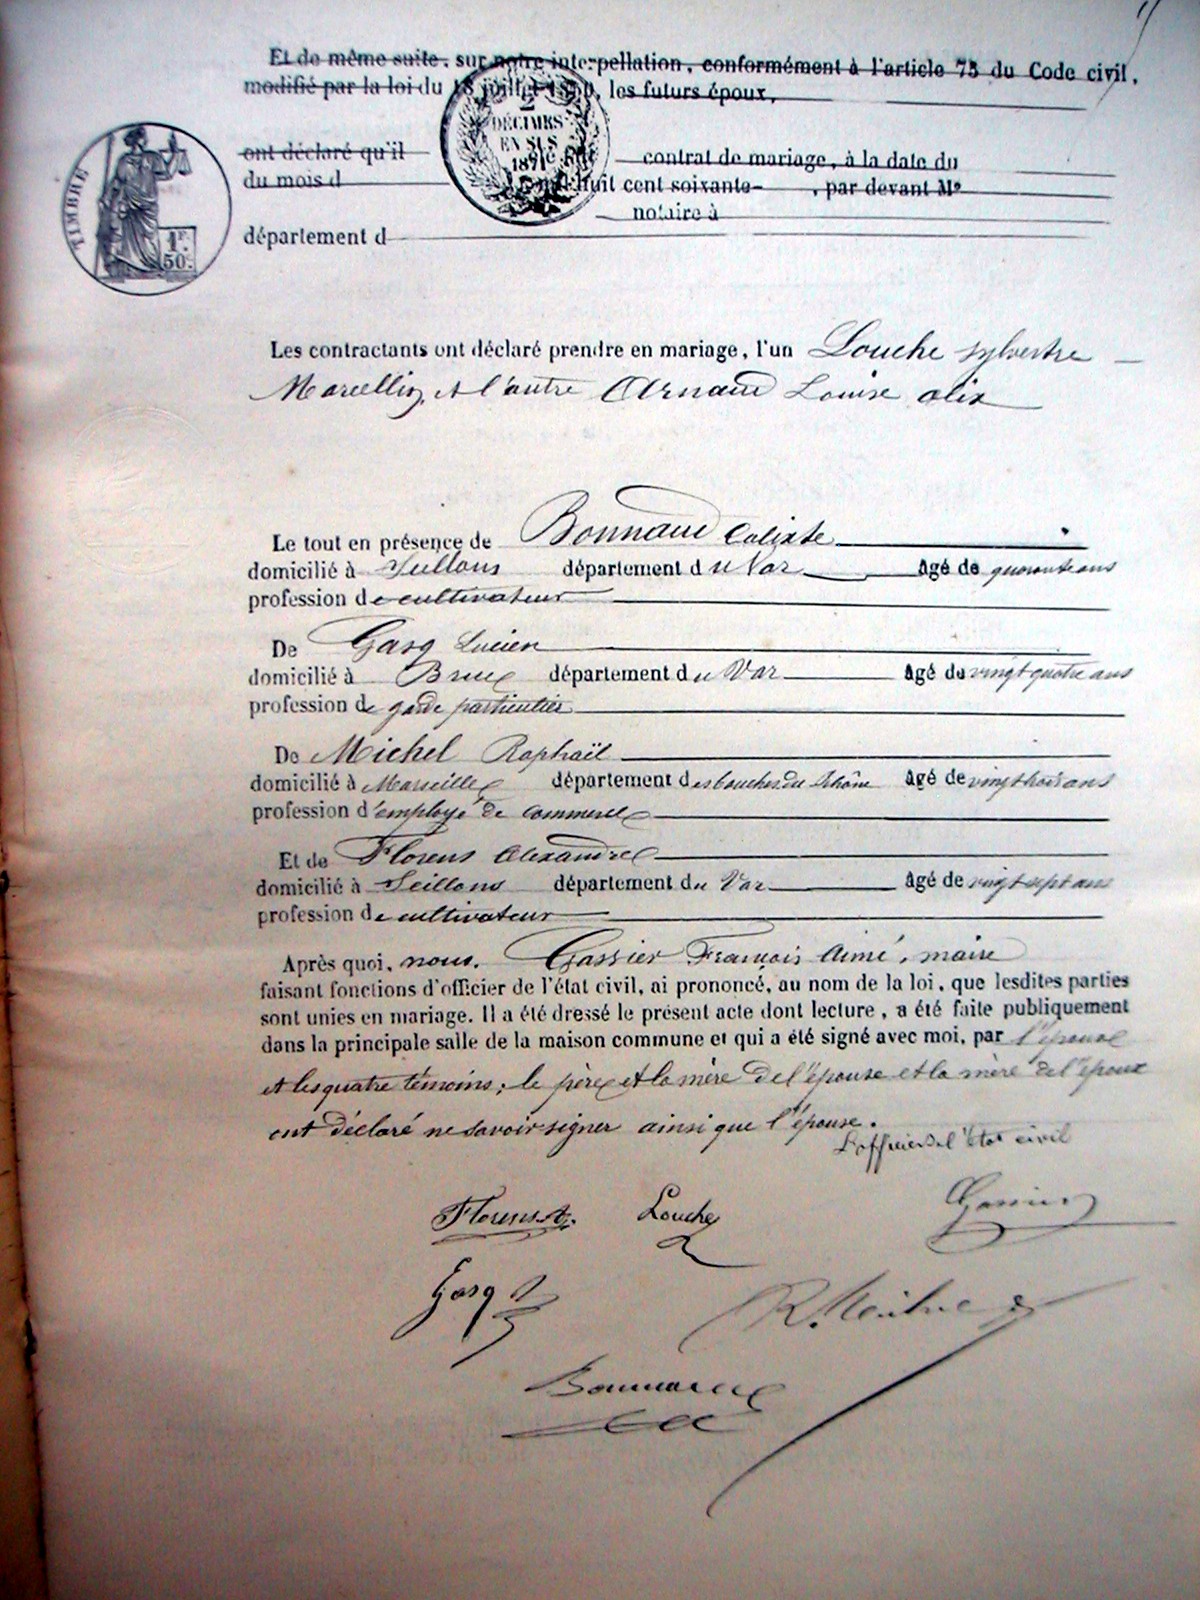 Et de même suite, sur notre interpellation, conformément à l'article 75 du Code civil,
modifié par la loi du 18 juillet les futurs époux,
DÉCIMES
EN SUS
1871
TIMBRE
1F.
50c.
ont déclaré qu'il contrat de mariage, à la date du
du mois d huit cent soixante- , par devant Me
notaire à
département d
Les contractants ont déclaré prendre en mariage, l'un Louche Sylvestre
Marcellin, et l'autre Arnaud Louise alix
Le tout en présence de Bonnaud Calixte
domicilié à Seillons département du Var Agé de quarante ans
profession de cultivateur
De Gasq Lucien
domicilié à Brue département du Var Agé de vingt quatre ans
profession de garde particulier
De Michel Raphaël
domicilié à Marseille département des bouches du Rhône Agé de vingt trois ans
profession d'employé de commerce
Et de Florens Alexandre
domicilié à Seillons département du Var Agé de vingt sept ans
profession de cultivateur
Après quoi, nous, Gassier François Aimé, maire
faisant fonctions d'officier de l'état civil, ai prononcé, au nom de la loi, que lesdites parties
sont unies en mariage. Il a été dressé le présent acte dont lecture, a été faite publiquement
dans la principale salle de la maison commune et qui a été signé avec moi, par l'époux
et les quatre témoins; le père et la mère de l'épouse et la mère de l'époux
ont déclaré ne savoir signer ainsi que l'épouse.
L'officier de l'état civil
Florens A. Louche Gassier
Gasq L
R. Michel
Bonnaud